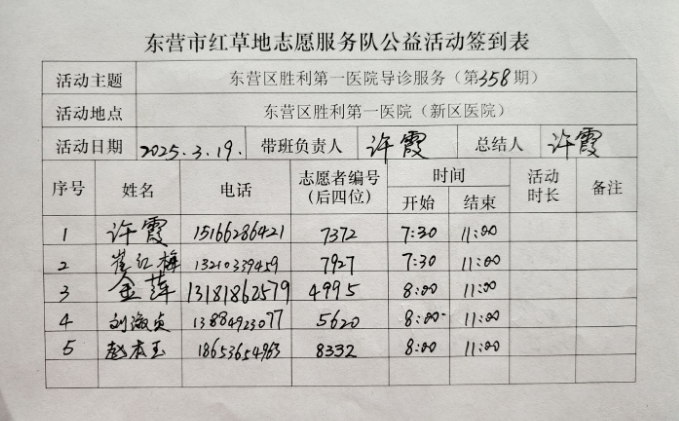 东营市红草地志愿服务队公益活动签到表
活动主题 东营区胜利第一医院导诊服务（第358期）
活动地点 东营区胜利第一医院（新区医院）
活动日期 2025.3.19. 带班负责人 许霞 总结人 许霞
序号 姓名 电话 志愿者编号（后四位） 时间 开始 结束 活动时长 备注
1 许霞 15166286421 7372 7:30 11:00
2 崔红梅 13210339459 7927 7:30 11:00
3 金莲 13181862579 4995 8:00 11:00
4 刘淑贞 13884923077 5620 8:00 11:00
5 赵本玉 18653654963 8332 8:00 11:00